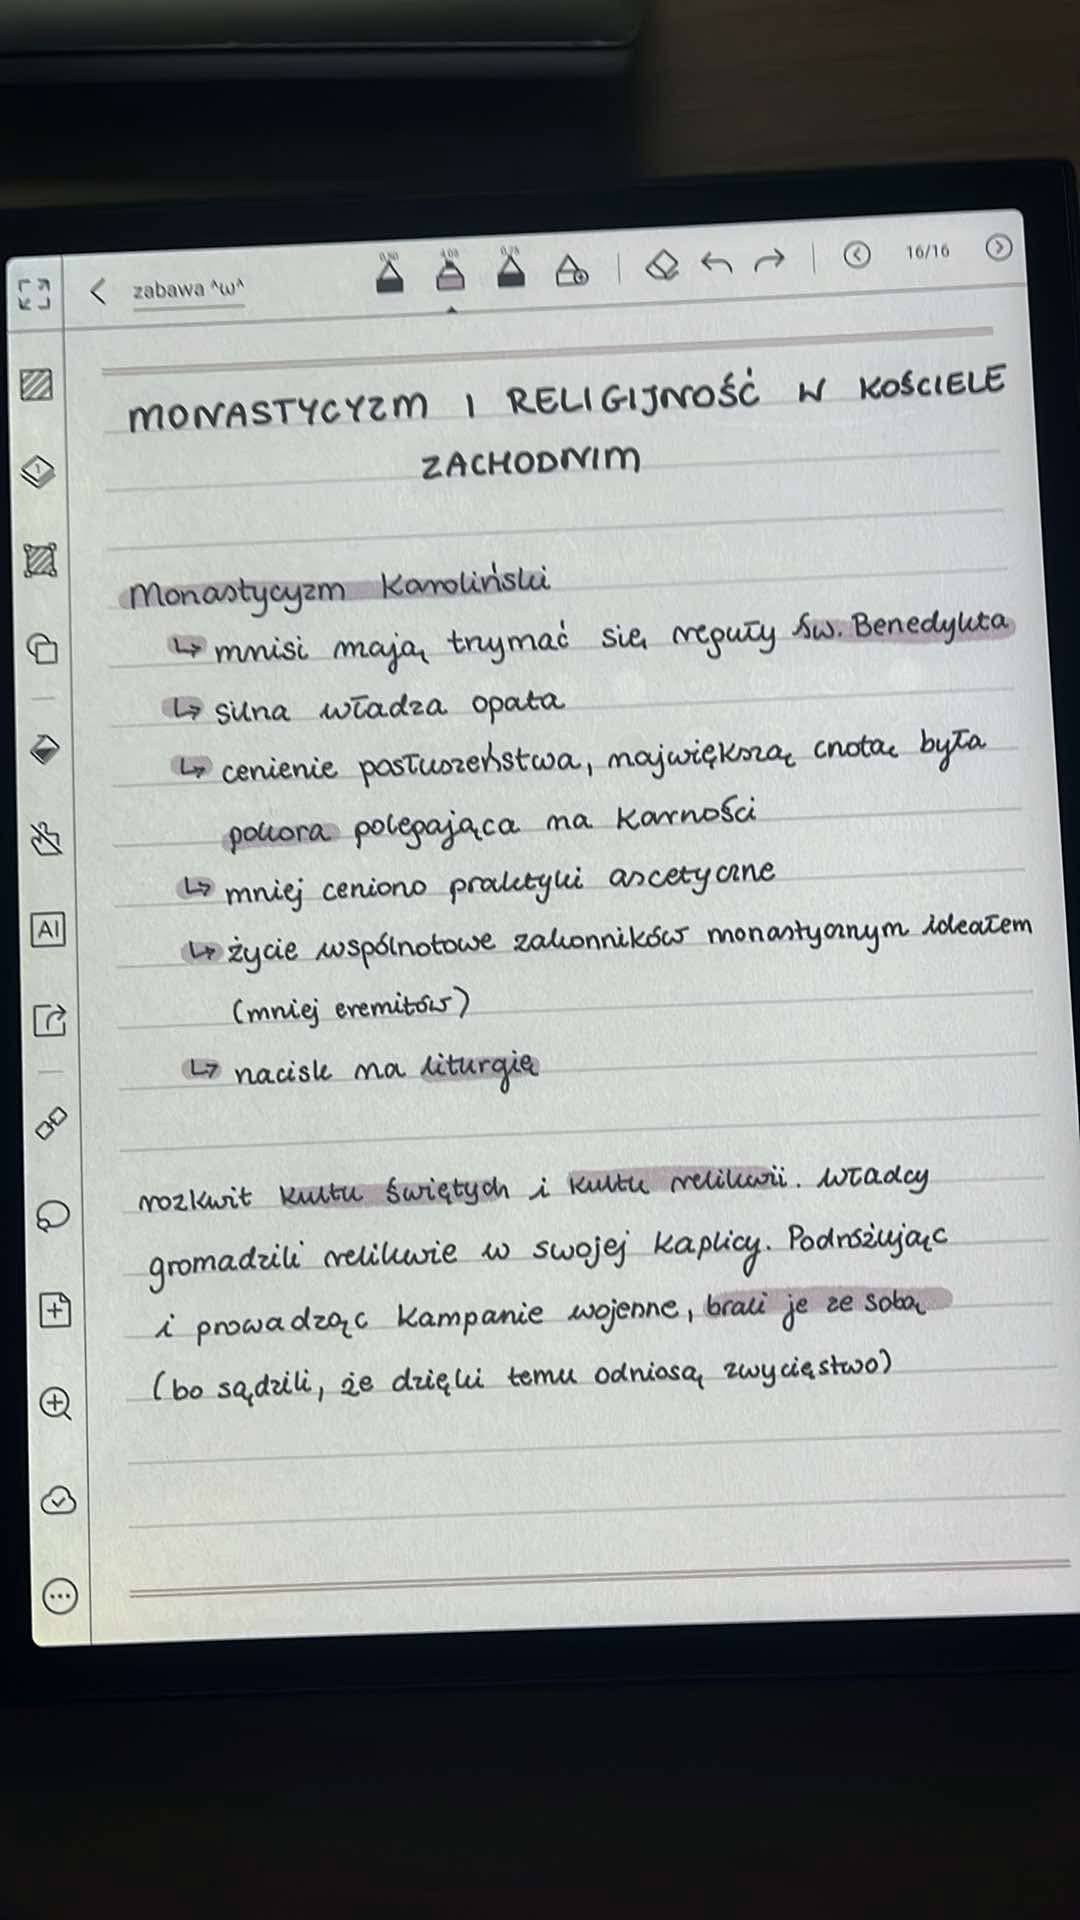 0,50 4,08 0,75
zabawa ^ω^ 16/16
MONASTYCYZM I RELIGIJNOŚĆ W KOŚCIELE
ZACHODNIM
Monastycyzm Karoliński
↳ mnisi mają trzymać się reguły św. Benedykta
↳ silna władza opata
↳ cenienie posłuszeństwa, największą cnotą była
pokora polegająca na karności
↳ mniej ceniono praktyki ascetyczne
↳ życie wspólnotowe zakonników monastycznym ideałem
(mniej eremitów)
↳ nacisk na liturgię
rozkwit kultu świętych i kultu relikwii. Władcy
gromadzili relikwie w swojej kaplicy. Podróżując
i prowadząc kampanie wojenne, brali je ze sobą
(bo sądzili, że dzięki temu odniosą zwycięstwo)
1
AI